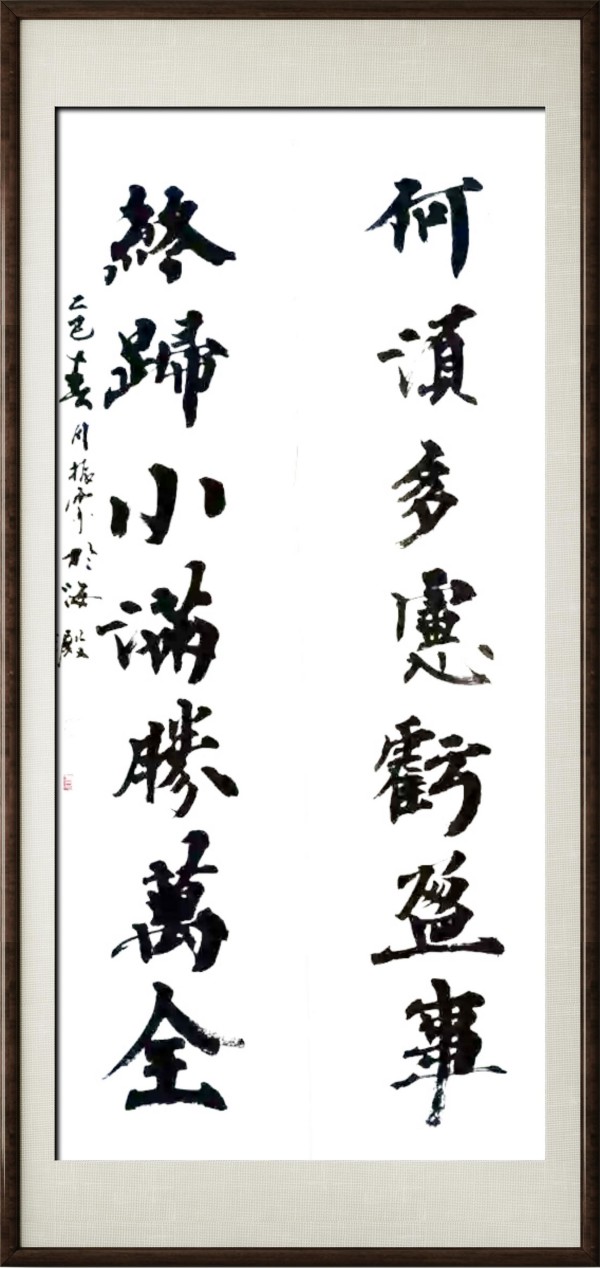 何湏多慮虧盈事
終歸小滿勝萬全
乙巳春振於海